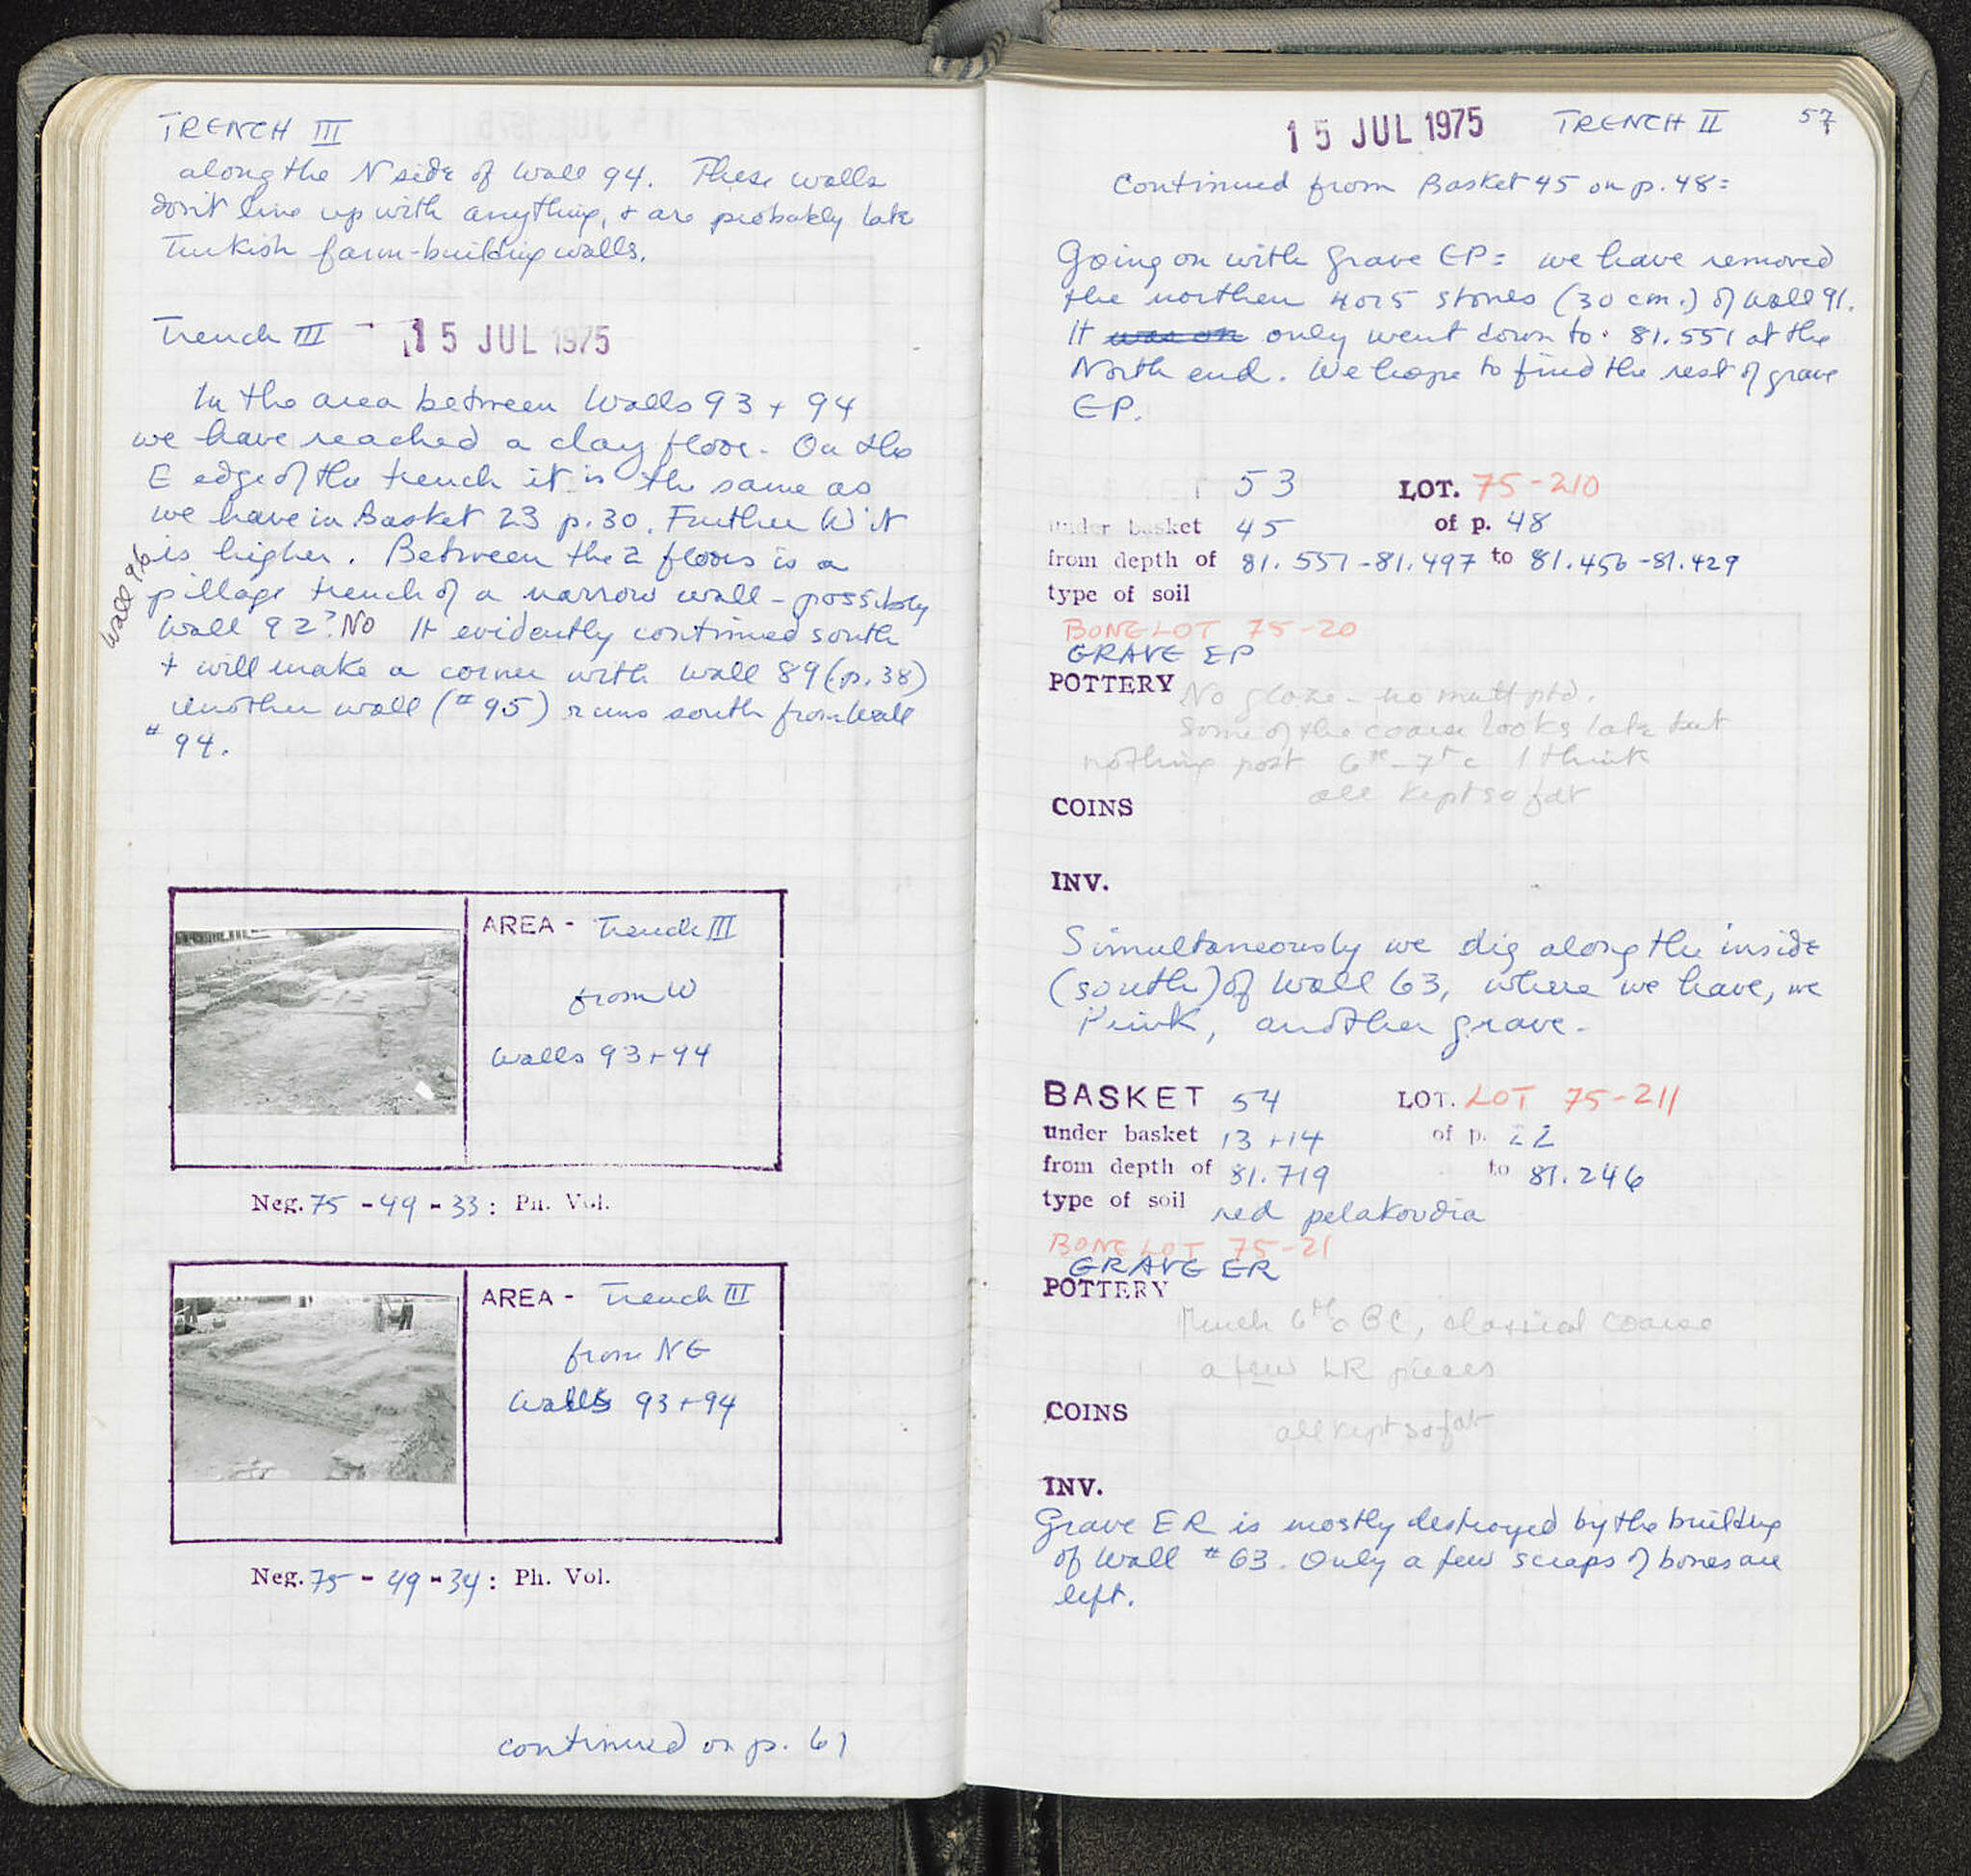 TRENCH III
along the N side of Wall 94. These walls
don't line up with anything, + are probably late
Turkish farm-building walls.
Trench III - 15 JUL 1975
In the area between Walls 93 + 94
we have reached a clay floor. On the
E edge of the trench it is the same as
we have in Basket 23 p. 30. Further W it
is higher. Between the 2 floors is a
pillage trench of a narrow wall - possibly
Wall 92? No It evidently continued south
+ will make a corner with Wall 89 (p. 38)
Another wall (#95) runs south from Wall
#94.
Wall 96
AREA - Trench III
from W
Walls 93+94
Neg. 75 - 49 - 33 : Ph. Vol.
AREA - Trench III
from NE
Walls 93+94
Neg. 75 - 49 - 34 : Ph. Vol.
continued on p. 61
15 JUL 1975 TRENCH II 57
Continued from Basket 45 on p. 48:
Going on with Grave EP: we have removed
the northern 4 or 5 stones (30 cm.) of Wall 91.
It was on only went down to: 81.551 at the
North end. We hope to find the rest of grave
EP.
53 LOT. 75-210
under basket 45 of p. 48
from depth of 81.557-81.497 to 81.456-81.429
type of soil
BONE LOT 75-20
GRAVE EP
POTTERY No glaze - no matt ptd.
Some of the coarse looks late but
nothing post 6th-7th c I think
all kept so far
COINS
INV.
Simultaneously we dig along the inside
(south) of Wall 63, where we have, we
think, another grave.
BASKET 54 LOT. LOT 75-211
under basket 13 + 14 of p. 22
from depth of 81.719 to 81.246
type of soil red pelakoudia
BONE LOT 75-21
GRAVE ER
POTTERY
Much 6th c BC, classical coarse
a few LR pieces
COINS
all kept so far
INV.
Grave ER is mostly destroyed by the building
of Wall #63. Only a few scraps of bones are
left.